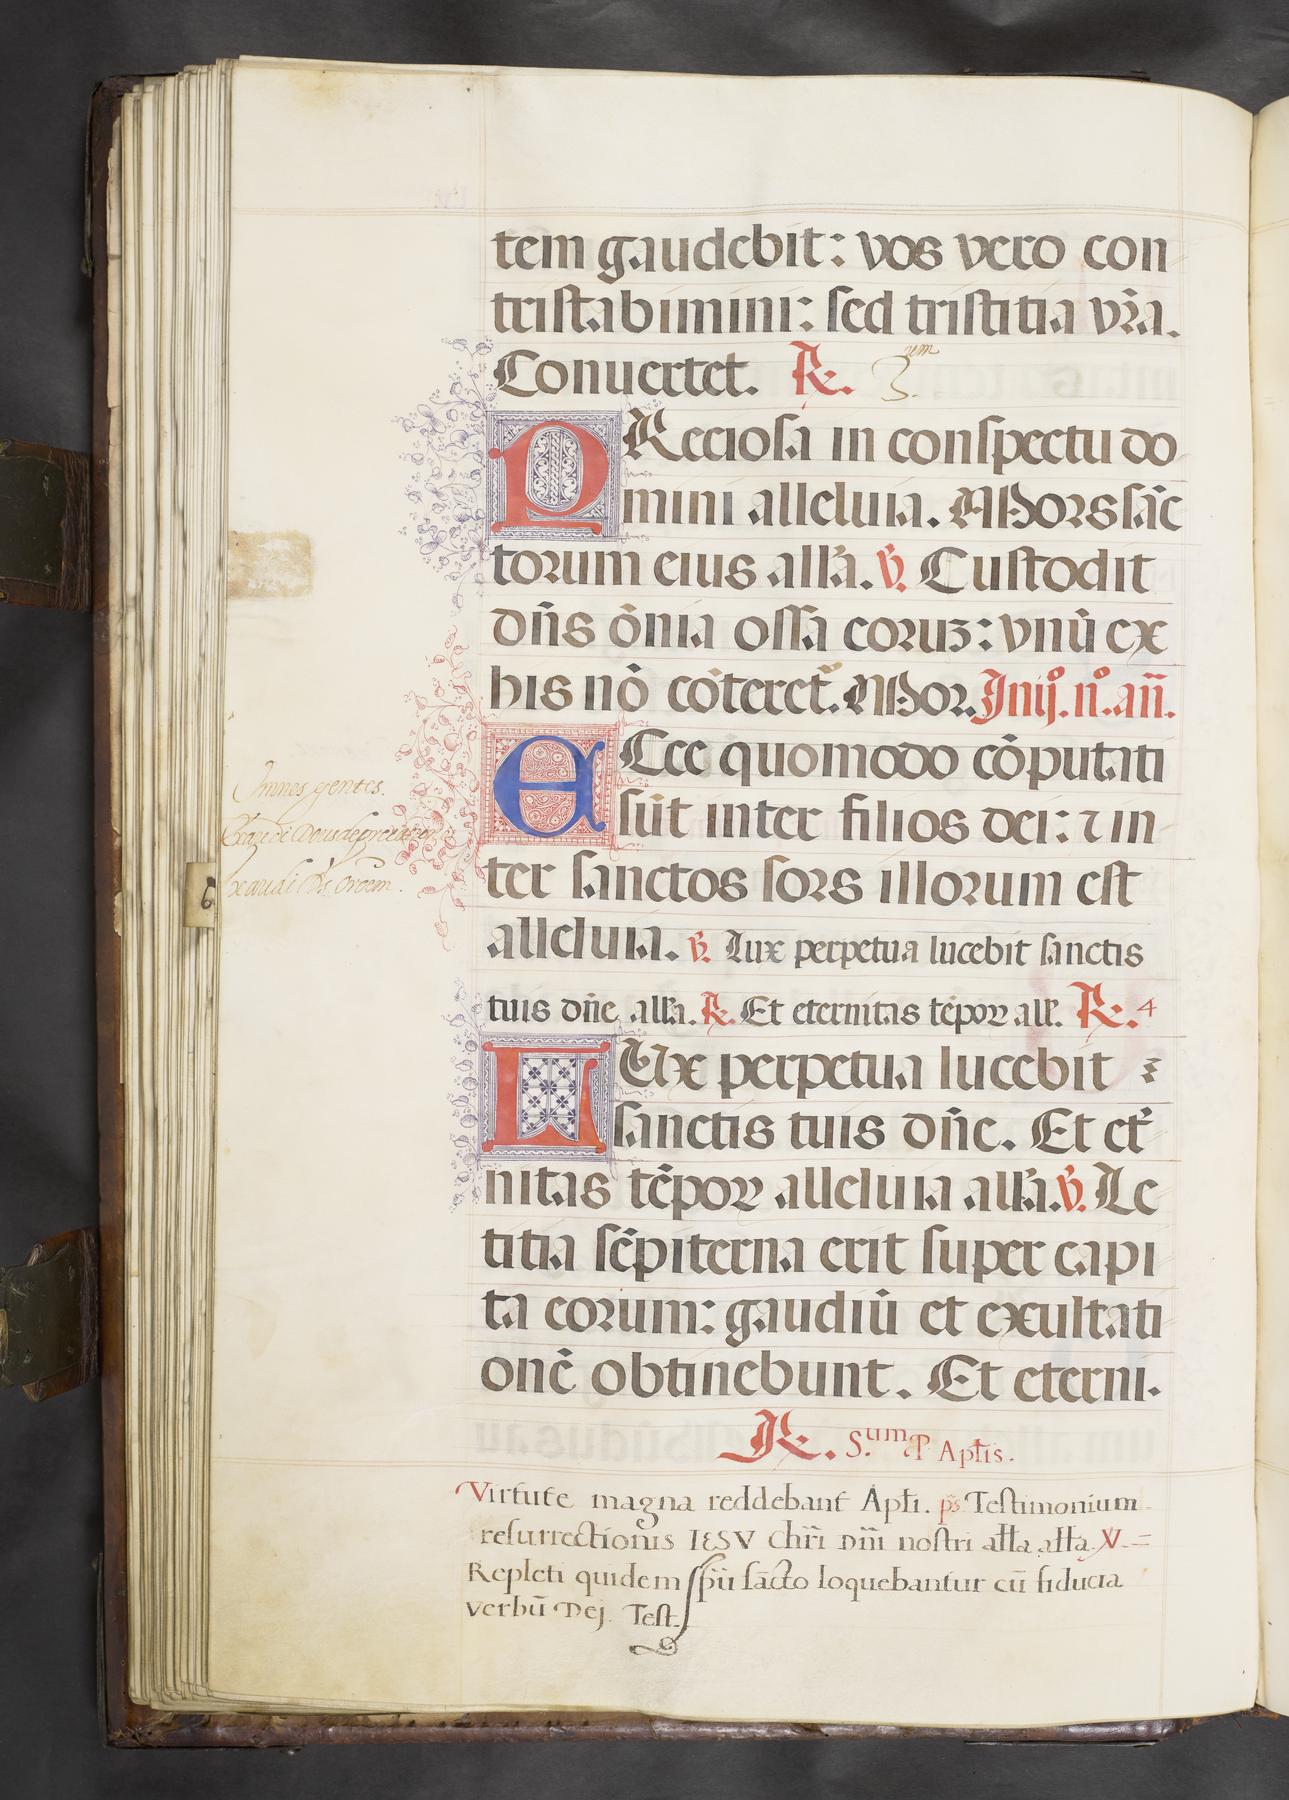 tem gaudebit: vos vero con
tristabimini: sed tristitia vr̃a.
Conuertet. ℟. 3.um
PReciosa in conspectu do
mini alleluia. Mors sãc
torum eius all'a. ℣. Custodit
dñs õnia ossa eoruꝫ: vnũ ex
his nõ cõteret̃. Mor. In ij.º n.º añ.
ECce quomodo cõputati
sũt inter filios dei: ⁊ in
ter sanctos sors illorum est
alleluia. ℣. Lux perpetua lucebit sanctis
tuis dñe all'a. ℟. Et eternitas tẽpoꝝ all'. ℟. 4
LUx perpetua lucebit
sanctis tuis dñe. Et et'
nitas tẽpoꝝ alleluia all'a. ℣. Le
titia sẽpiterna erit super capi
ta eorum: gaudiũ et exultati
onẽ obtinebunt. Et eterni.
℟. S.um P Aptis.
Virtute magna reddebant Apti. ps Testimonium
resurrectionis IESV Chr̃i Dñi nostri alła alła. ℣. =
Repleti quidem spũ sãcto loquebantur cũ fiducia
verbũ Dej. Test.
Omnes gentes.
exaudi Ds. orõem.
6